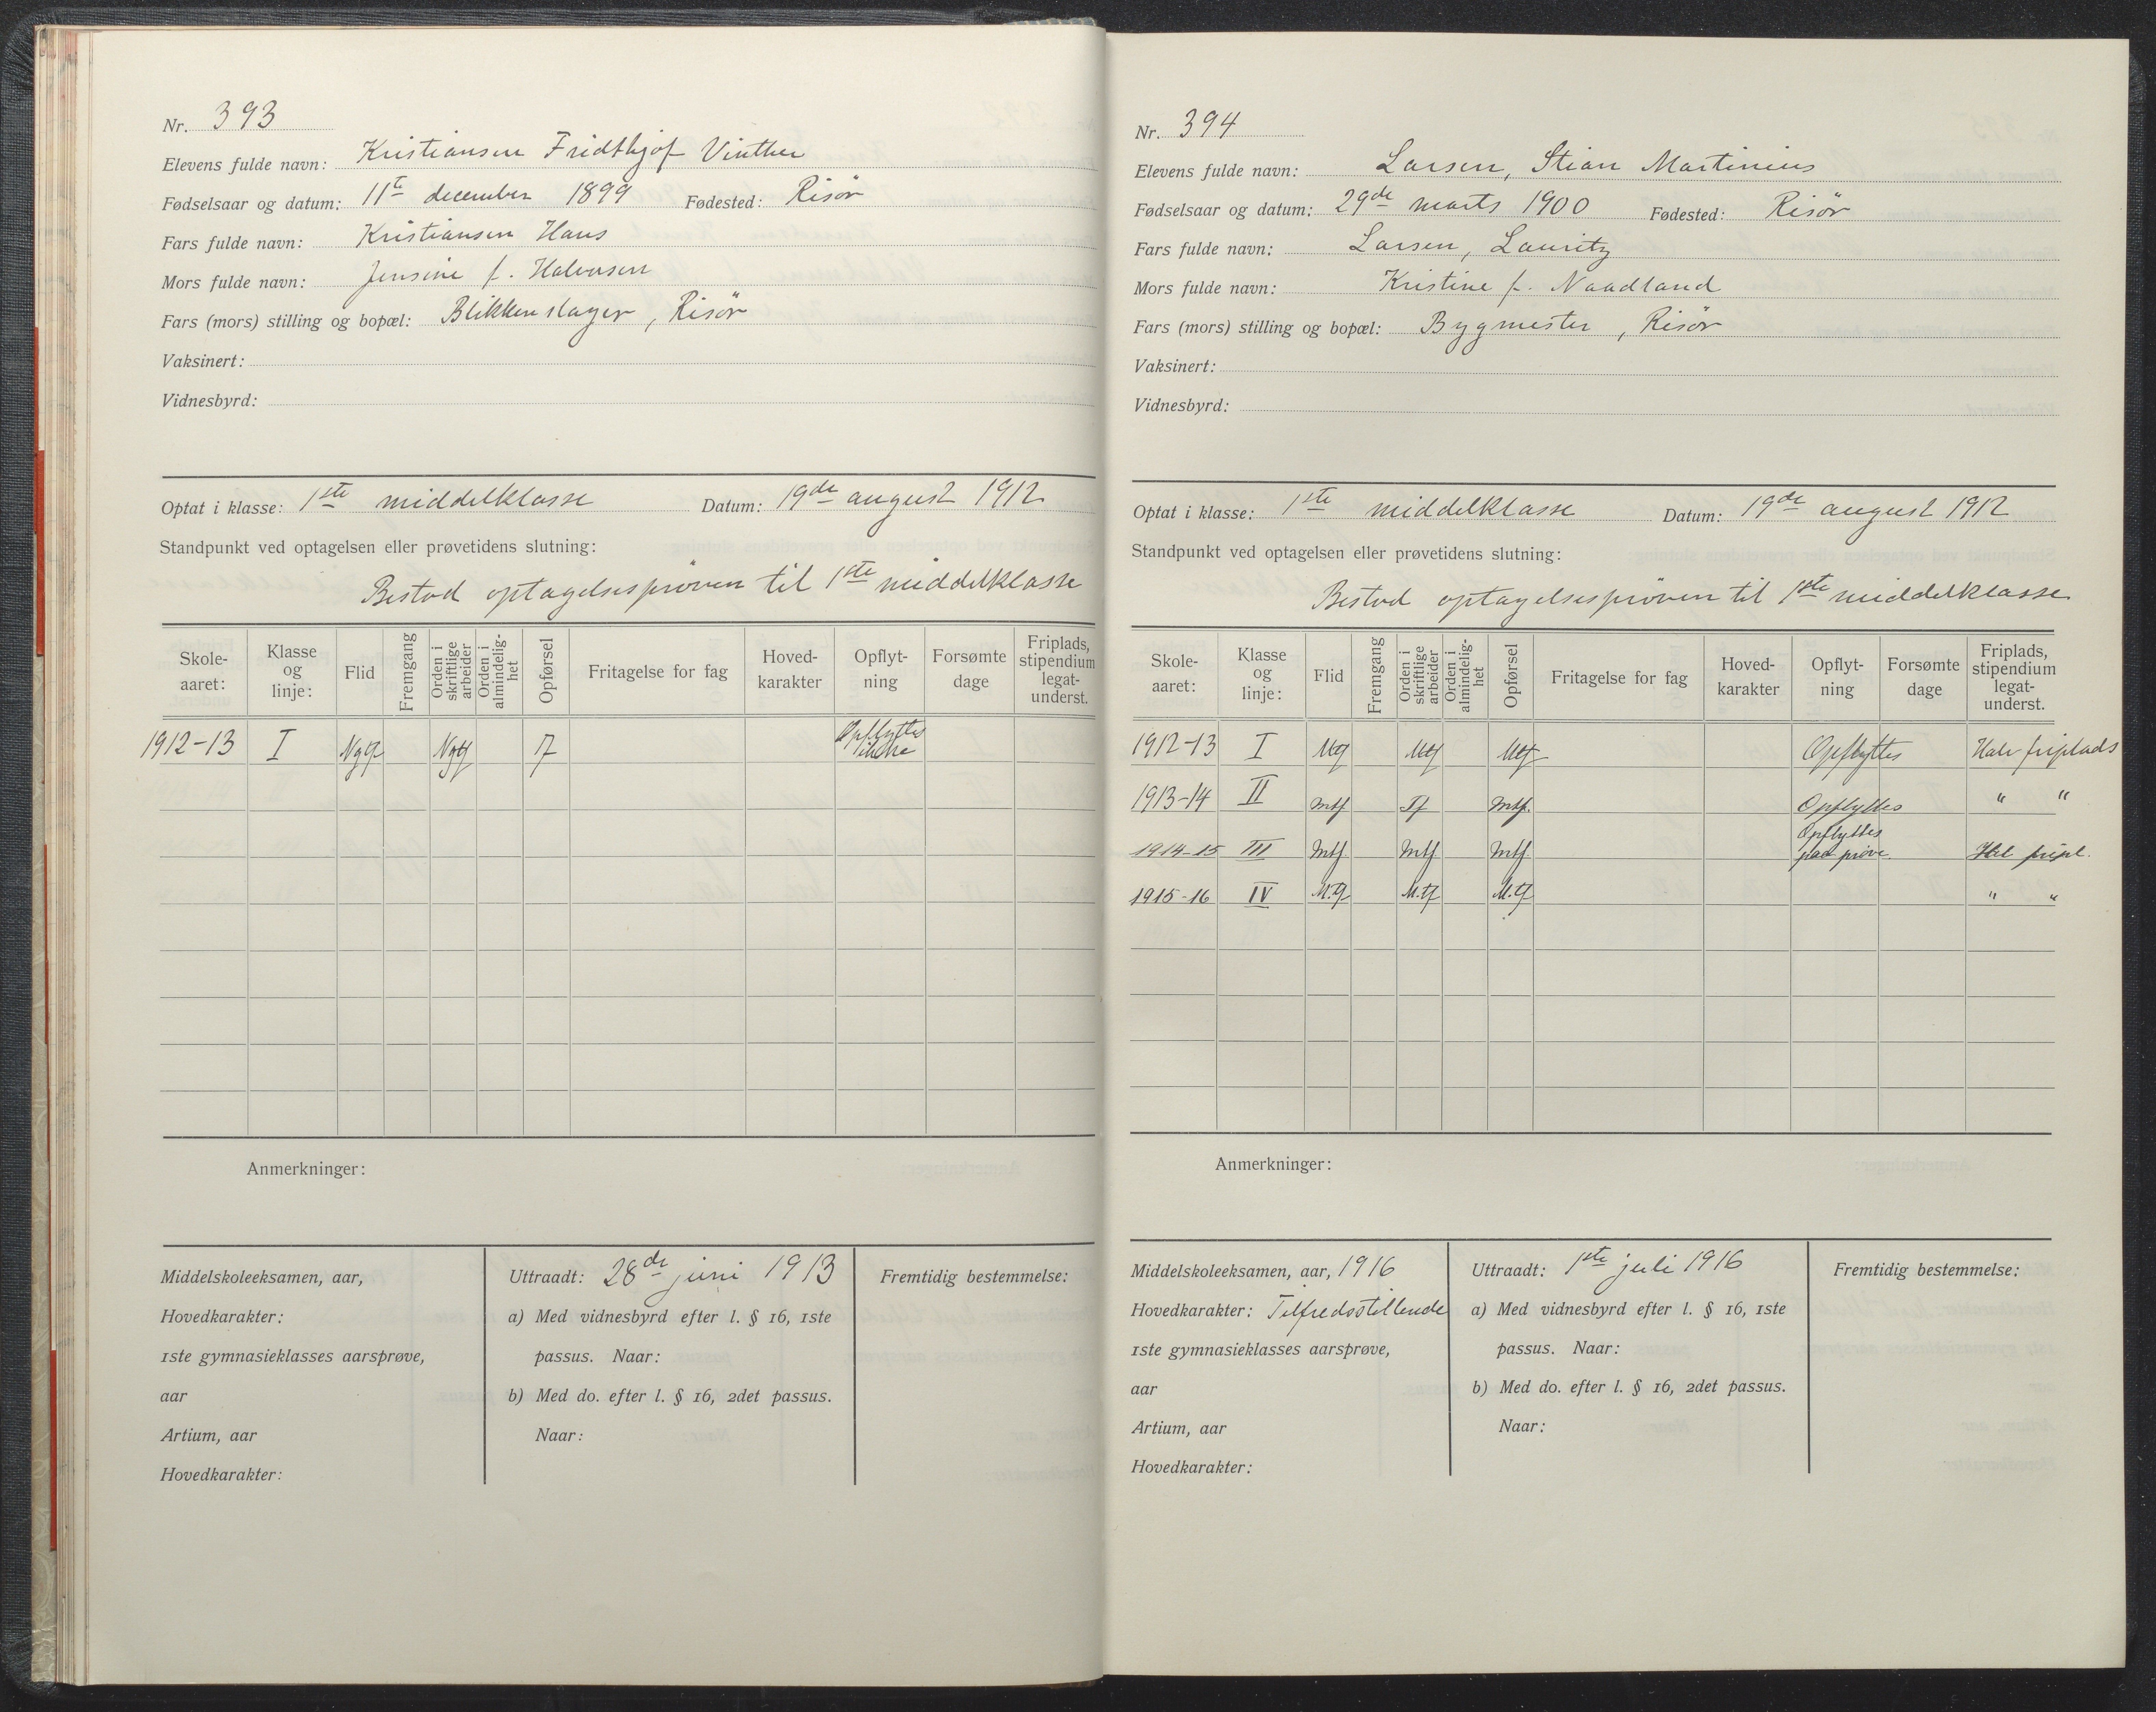 Nr. 393
Elevens fulde navn: Kristiansen Fridthjof Vinther
Fødselsaar og datum: 11te december 1899 Fødested: Risör
Fars fulde navn: Kristiansen Hans
Mors fulde navn: Jensine f. Halvorsen
Fars (mors) stilling og bopæl: Blikkenslager, Risör
Vaksinert:
Vidnesbyrd:
Optat i klasse: 1ste middelklasse Datum: 19de august 1912
Standpunkt ved optagelsen eller prøvetidens slutning:
Bestod optagelsespröven til 1ste middelklasse
Skole-aaret: Klasse og linje: Flid Fremgang Orden i skriftlige arbeider Orden i almindelig-het Opførsel Fritagelse for fag Hoved-karakter Opflyt-ning Forsømte dage Friplads, stipendium legat-underst.
1912-13 I Ngtf Ngtf Tf Opflyttes ikke
Anmerkninger:
Middelskoleeksamen, aar,
Hovedkarakter:
1ste gymnasieklasses aarsprøve,
aar
Artium, aar
Hovedkarakter:
Uttraadt: 28de juni 1913
a) Med vidnesbyrd efter l. § 16, 1ste
passus. Naar:
b) Med do. efter l. § 16, 2det passus.
Naar:
Fremtidig bestemmelse:
Nr. 394
Elevens fulde navn: Larsen, Stian Martinius
Fødselsaar og datum: 29de marts 1900 Fødested: Risör
Fars fulde navn: Larsen, Lauritz
Mors fulde navn: Kristine f. Naadland
Fars (mors) stilling og bopæl: Bygmester, Risör
Vaksinert:
Vidnesbyrd:
Optat i klasse: 1ste middelklasse Datum: 19de august 1912
Standpunkt ved optagelsen eller prøvetidens slutning:
Bestod optagelsespröven til 1ste middelklasse
Skole-aaret: Klasse og linje: Flid Fremgang Orden i skriftlige arbeider Orden i almindelig-het Opførsel Fritagelse for fag Hoved-karakter Opflyt-ning Forsømte dage Friplads, stipendium legat-underst.
1912-13 I Mtf Mtf Mtf Opflyttes Halv friplads
1913-14 II Mtf. Tf Mtf. Opflyttes " "
1914-15 III Mtf. Mtf. Mtf. Opflyttes paa prøve. Hel fripl.
1915-16 IV M.tf M.tf M.tf " "
Anmerkninger:
Middelskoleeksamen, aar, 1916
Hovedkarakter: Tilfredsstillende
1ste gymnasieklasses aarsprøve,
aar
Artium, aar
Hovedkarakter:
Uttraadt: 1ste juli 1916
a) Med vidnesbyrd efter l. § 16, 1ste
passus. Naar:
b) Med do. efter l. § 16, 2det passus.
Naar:
Fremtidig bestemmelse: